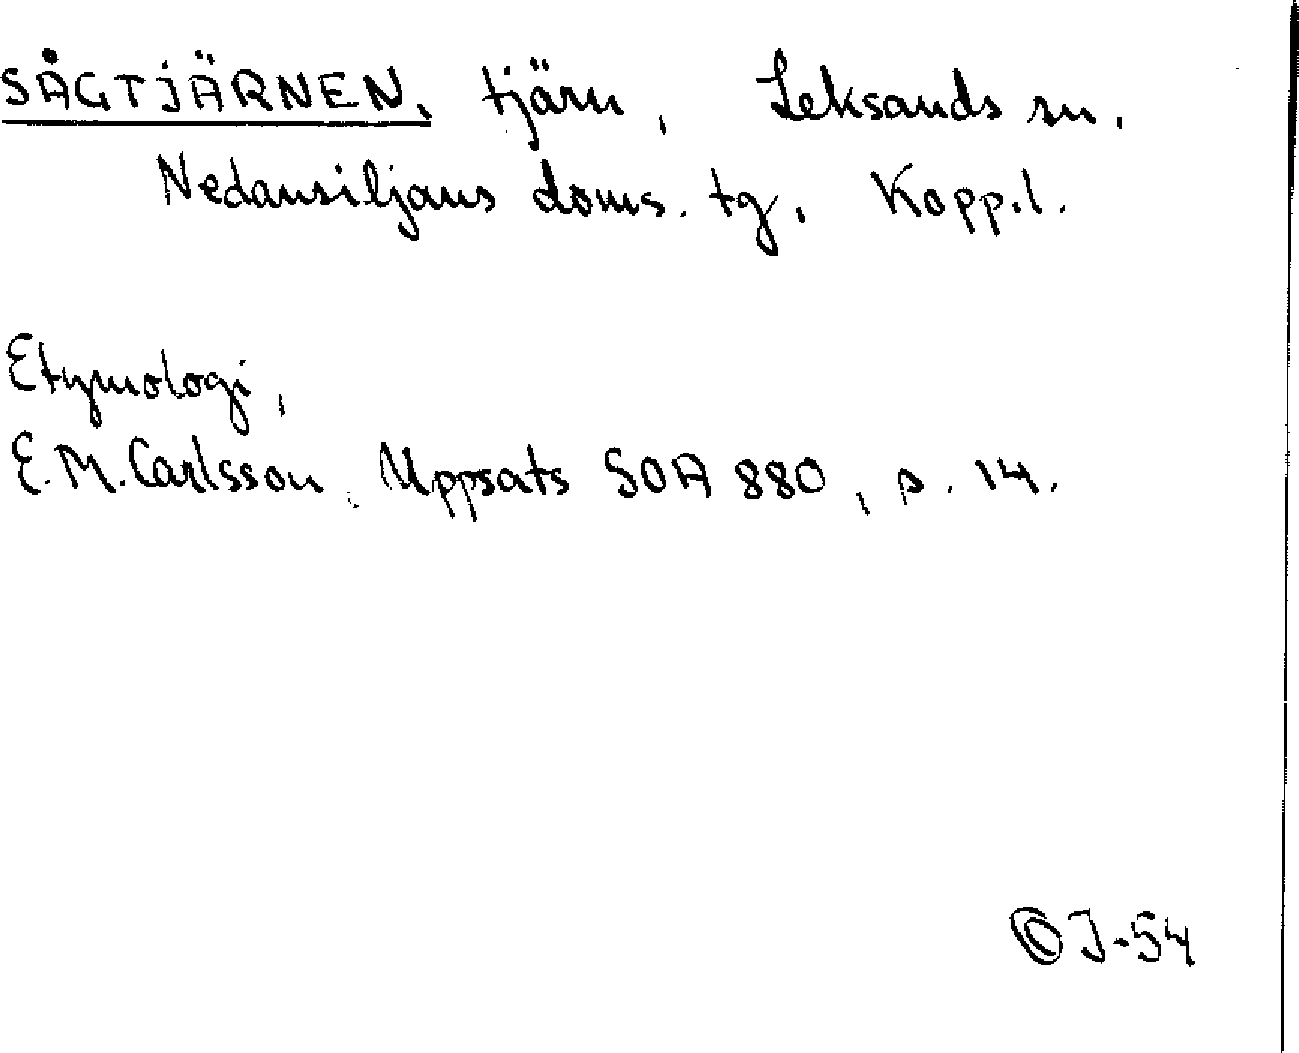 SÅGTJÄRNEN, tjärn, Leksands sn.
Nedansiljans doms. tg, Kopp.l.
Etymologi,
E.M. Carlsson, Uppsats SOA 880, s. 14.
©J-54